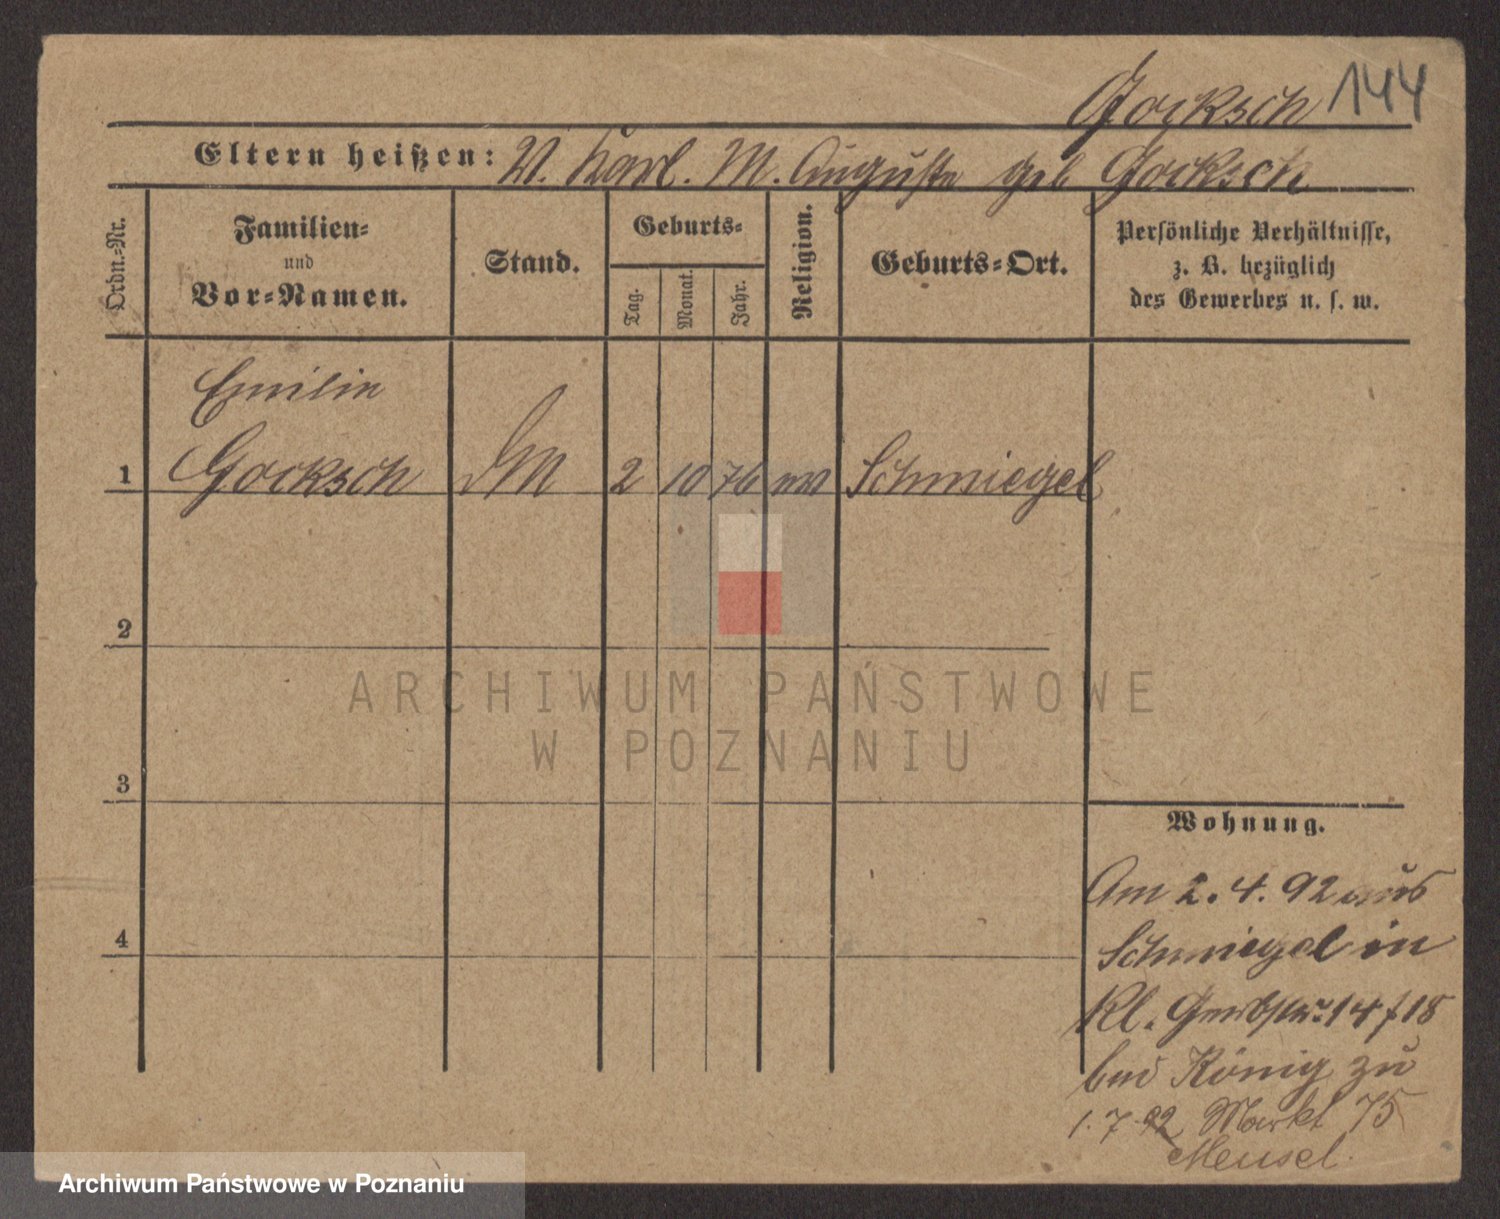 Gocksch 144
Eltern heißen: V. Karl. M. Auguste geb Gocksch
Ordn.=Nr.
Familien=
und
Vor=Namen.
Stand.
Geburts=
Tag.
Monat.
Jahr.
Religion.
Geburts=Ort.
Persönliche Verhältnisse,
z. B. bezüglich
des Gewerbes u. s. w.
Emilie
1 Gocksch DM 2 10 76 ev Schmiegel
2
3
4
ARCHIWUM PAŃSTWOWE
W POZNANIU
Wohnung.
Am 2. 4. 92 aus
Schmiegel in
Kl. Gerbstr. 14/18
bei König zu
1. 7. 92 Markt 75
Meusel.
Archiwum Państwowe w Poznaniu